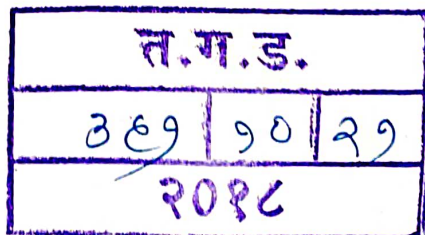 त.ग.ड.
३६१ | १० | २१
२०१८